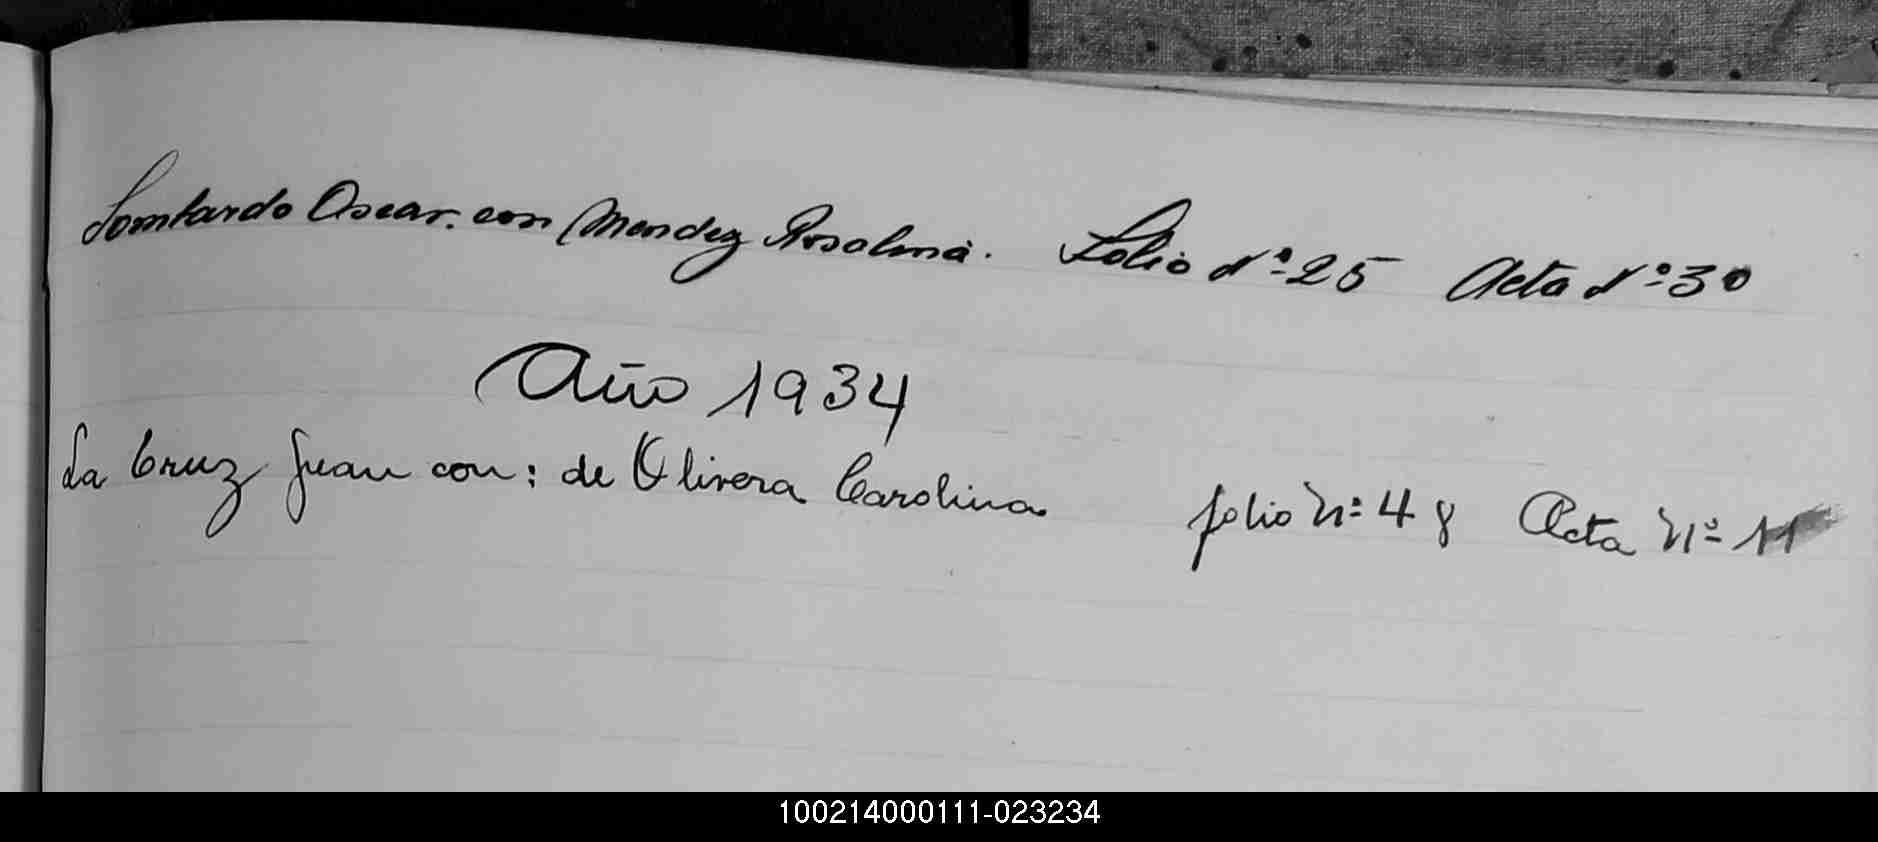 Lombardo Oscar. con Mendez Rosalma. Folio Nº 25 Acta Nº 30
Año 1934
La Cruz Juan con: de Olivera Carolina folio Nº 48 Acta Nº 11
100214000111-023234